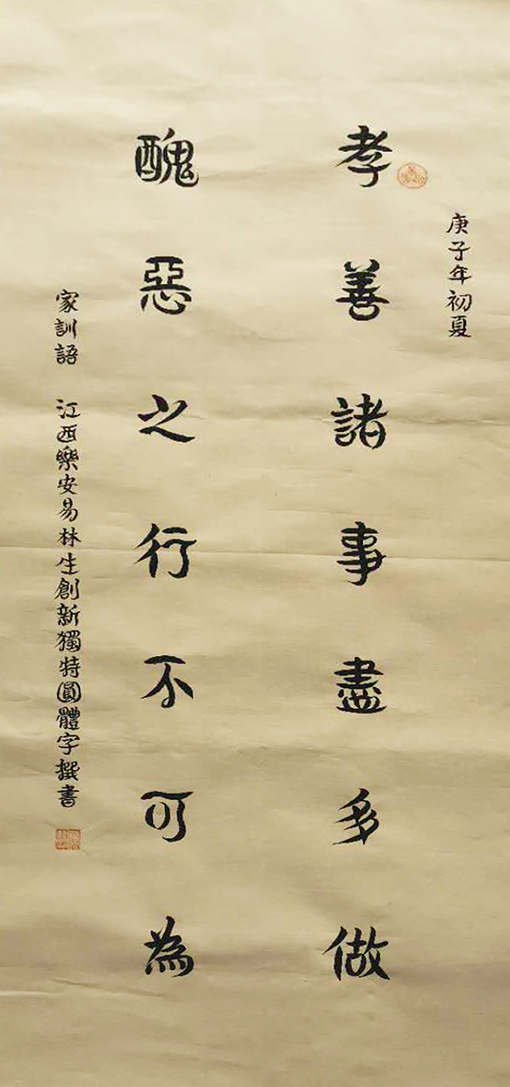 庚子年初夏
孝善諸事盡多做
醜惡之行不可為
家訓語 江西樂安易林生創新獨特圓體字撰書